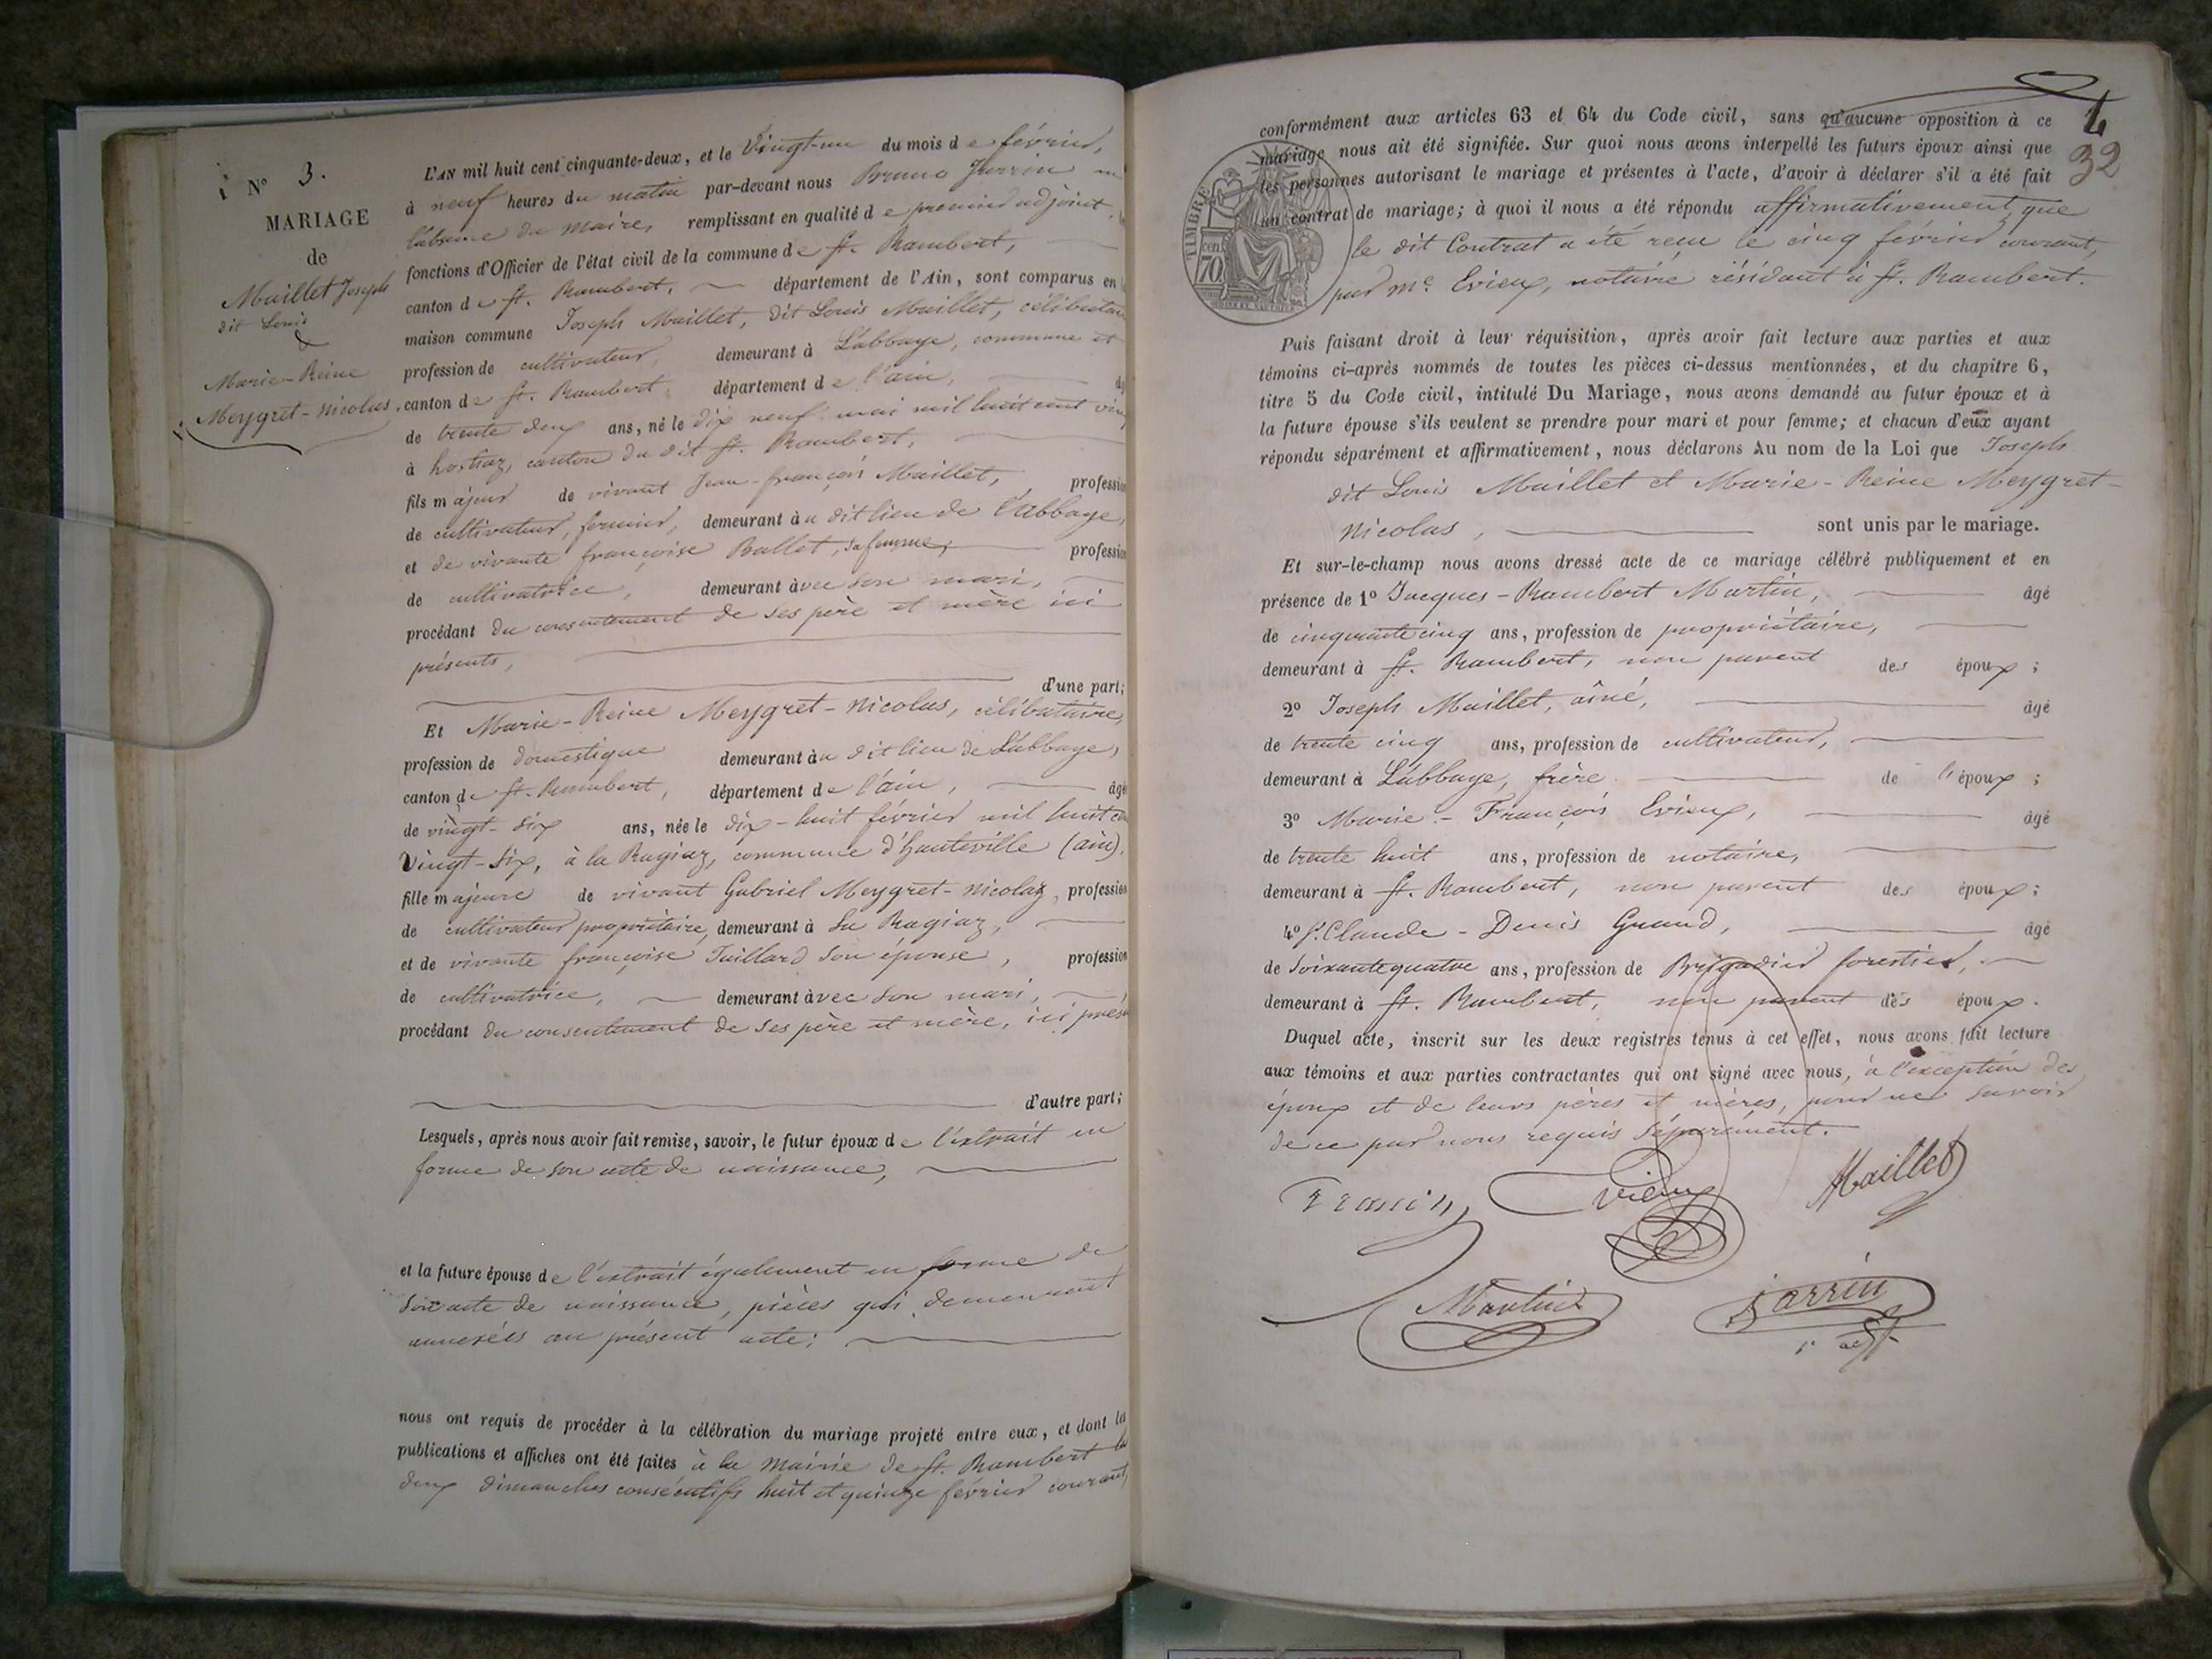 N° 3.
MARIAGE
de
Maillet Joseph
dit Louis
&
Marie-Reine
Meygret-Nicolas.
L'AN mil huit cent cinquante-deux, et le Vingt-un du mois de février,
à neuf heures du matin par-devant nous Bruno Jarrin en
l'absence du Maire, remplissant en qualité de premier adjoint, le
fonctions d'Officier de l'état civil de la commune de St. Rambert,
canton de St. Rambert, département de l'Ain, sont comparus en
maison commune Joseph Maillet, dit Louis Maillet, célibatair
profession de cultivateur, demeurant à L'abbaye, commune et
canton de St. Rambert, département de l'ain,
de trente deux ans, né le dix neuf mai mil huit cent vin
à hostiaz, canton du dit St. Rambert,
fils majeur de vivant Jean-françois Maillet, profession
de cultivateur, fermier, demeurant au dit lieu de l'Abbaye,
et de vivante françoise Ballet, sa femme, profession
de cultivatrice, demeurant avec son mari,
procédant du consentement de ses père et mère ici
présents,
d'une part;
Et Marie-Reine Meygret-Nicolas, célibataire,
profession de domestique demeurant au dit lieu de L'abbaye,
canton de St. Rambert, département de l'ain, âgé
de vingt-six ans, née le dix-huit février mil huit cen
Vingt-Six, à la Ragiaz, commune d'hauteville (ain).
fille majeure de vivant Gabriel Meygret-Nicolaz, profession
de cultivateur propriétaire, demeurant à La Ragiaz,
et de vivante françoise Juillard son épouse, profession
de cultivatrice, demeurant avec son mari,
procédant du consentement de ses père et mère, ici prése
d'autre part;
Lesquels, après nous avoir fait remise, savoir, le futur époux de l'extrait en
forme de son acte de naissance,
et la future épouse de l'extrait également en forme de
son acte de naissance, pièces qui demeurent
annexées au présent acte;
nous ont requis de procéder à la célébration du mariage projeté entre eux, et dont les
publications et affiches ont été faites à la Mairie de St. Rambert les
deux dimanches consécutifs huit et quinze février courant,
4
32
conformément aux articles 63 et 64 du Code civil, sans qu'aucune opposition à ce
mariage nous ait été signifiée. Sur quoi nous avons interpellé les futurs époux ainsi que
les personnes autorisant le mariage et présentes à l'acte, d'avoir à déclarer s'il a été fait
un contrat de mariage; à quoi il nous a été répondu affirmativement, que
le dit Contrat a été reçu le cinq février courant,
par Me. Evieux, notaire résidant à St. Rambert.
TIMBRE
70 cen
Puis faisant droit à leur réquisition, après avoir fait lecture aux parties et aux
témoins ci-après nommés de toutes les pièces ci-dessus mentionnées, et du chapitre 6,
titre 5 du Code civil, intitulé Du Mariage, nous avons demandé au futur époux et à
la future épouse s'ils veulent se prendre pour mari et pour femme; et chacun d'eux ayant
répondu séparément et affirmativement, nous déclarons Au nom de la Loi que Joseph
dit Louis Maillet et Marie-Reine Meygret-
Nicolas, sont unis par le mariage.
Et sur-le-champ nous avons dressé acte de ce mariage célébré publiquement et en
présence de 1° Jacques-Rambert Martin, âgé
de cinquante cinq ans, profession de propriétaire,
demeurant à St. Rambert, non parent des époux;
2° Joseph Maillet, aîné, âgé
de trente cinq ans, profession de cultivateur,
demeurant à L'abbaye, frère de l'époux;
3° Marie-François Evieux, âgé
de trente huit ans, profession de notaire,
demeurant à St. Rambert, non parent des époux;
4° Claude-Denis âgé
de Soixante quatre ans, profession de Brigadier forestier,
demeurant à St. Rambert, non parent des époux.
Duquel acte, inscrit sur les deux registres tenus à cet effet, nous avons fait lecture
aux témoins et aux parties contractantes qui ont signé avec nous, à l'exception des
époux et de leurs pères et mères, pour ne savoir
de ce par nous requis séparément.
Evieux Maillet
Martin Jarrin
1er adjt